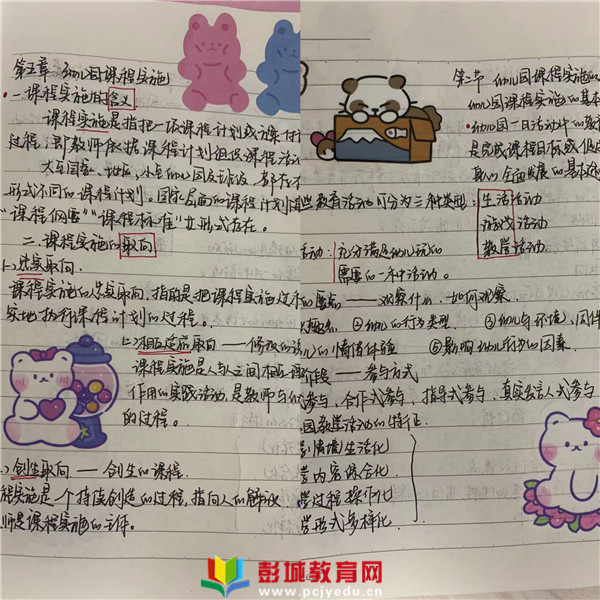 第五章 幼儿园课程实施
一.课程实施的含义
课程实施是指把一项课程计划或课付诸
过程,即教师依据课程计划组织课程活动
大至国家、地区,小至幼儿园及班级,都存在不
形式不同的课程计划。国家层面的课程计划
“课程纲要”“课程标准”等形式存在。
二.课程实施的取向
忠实取向.
课程实施的忠实取向,指的是把课程实施过
实地执行课程计划的过程。
相互适应取向——修改的
课程实施是人与人之间相互
作用的实践活动,是教师与
的过程。
创生取向——创生的课程.
程实施是一个持续创造的过程,指向人的解放
师是课程实施的主体。
第二节 幼儿园课程实施的
幼儿园课程实施的基本
幼儿园一日活动中的教
是完成课程目标或促
教育活动可分为三种类型:
生活活动
游戏活动
教学活动
活动:充分满足幼儿玩的
需要的一种活动。
要点——观察什么、如何观察.
②幼儿的行为类型. ③幼儿与环境、同伴
儿的情绪体验 ⑥影响幼儿行为的因素.
手段——参与方式
参与、合作式参与、指导式参与、真实
园教学活动的特征.
情境生活化
内容综合化
过程操作化
形式多样化
彭城教育网
www.pcjyedu.cn